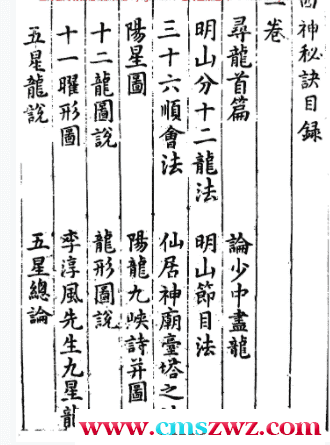 四神秘訣目錄
卷
尋龍首篇 論少中盡龍
明山分十二龍法 明山節目法
三十六順會法 仙居神廟臺塔之
陽星圖 陽龍九峽詩并圖
十二龍圖說 龍形圖說
十一曜形圖 李淳風先生九星龍
五星龍說 五星總論
www.cmszwz.com